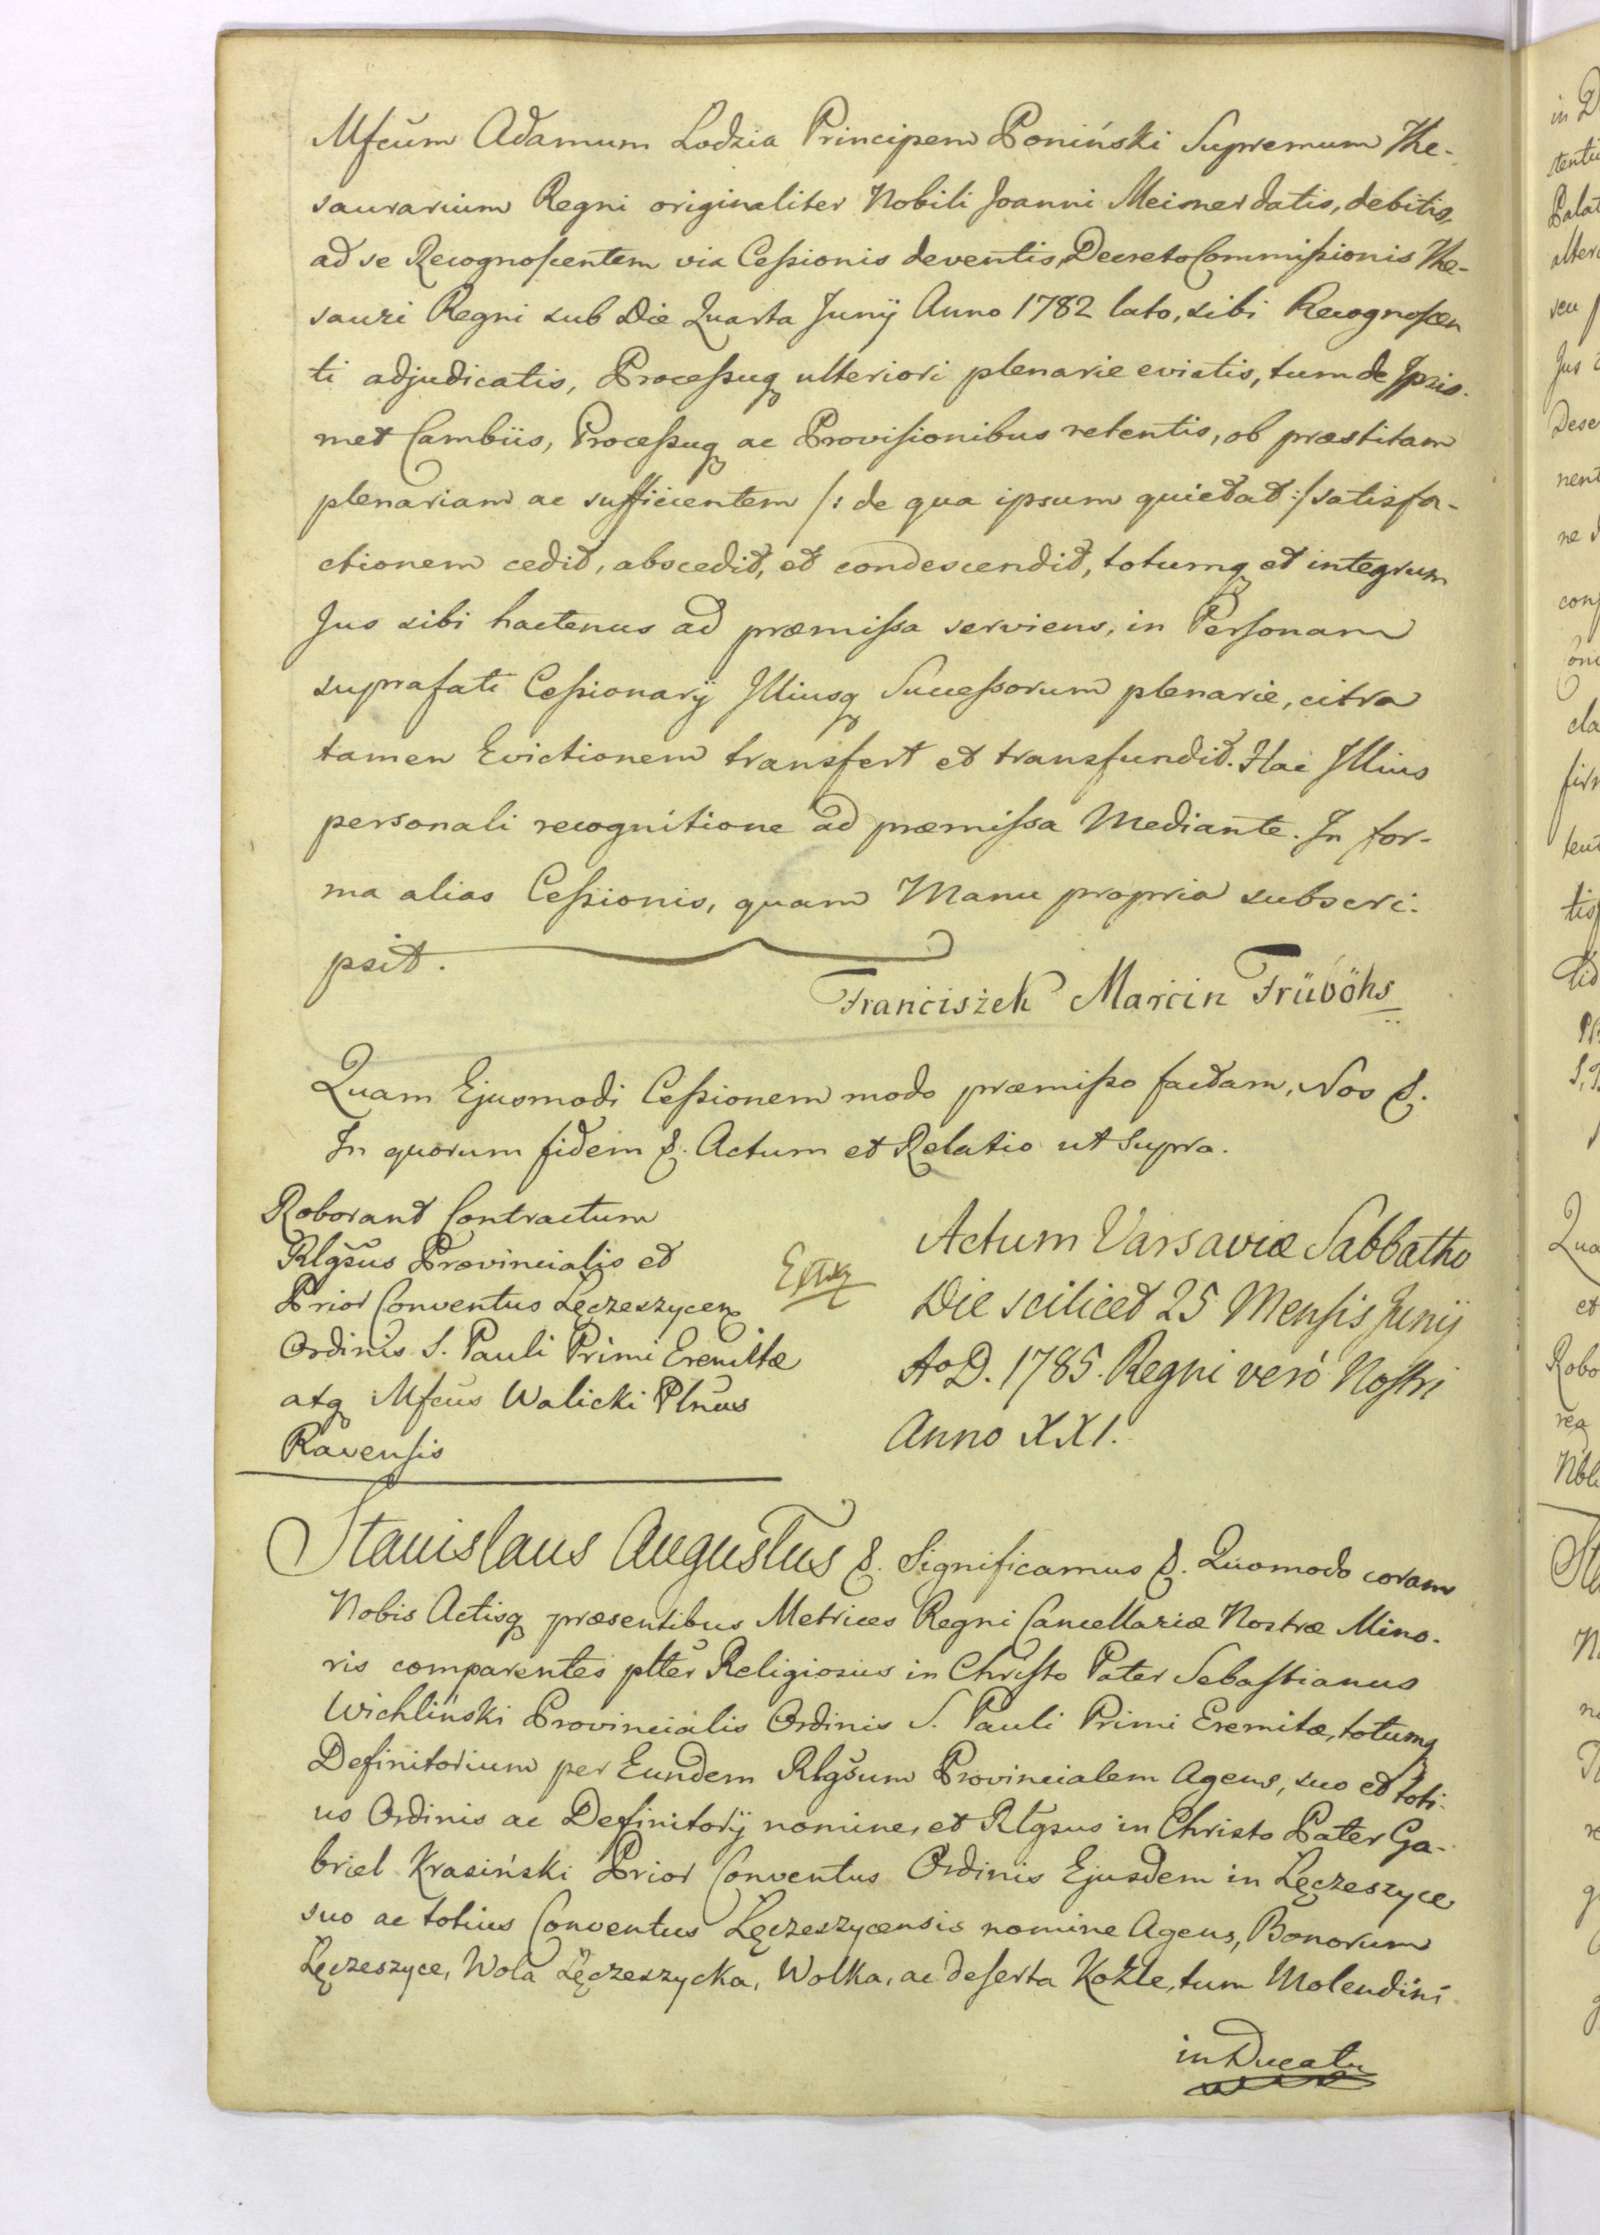 Mfcum Adamum Lodzia Principem Poniński Supremum The-
saurarium Regni originaliter Nobili Joanni Meisner datis, debitis,
ad se Recognoscentem via Cessionis deventis, Decreto Commissionis The-
sauri Regni sub Die Quarta Junij Anno 1782 lato, sibi Recognoscen
ti adjudicatis, Processuq ulteriori plenarie evictis, tum de Ipsis-
met Cambiis, Processuq ac Provisionibus retentis, ob præstitam
plenariam ac sufficientem /: de qua ipsum quietat :/ satisfa-
ctionem cedit, abscedit, et condescendit, totumq et integrum
Jus sibi hactenus ad præmissa serviens, in Personam
suprafati Cessionarij Illiusq Successorum plenarie, citra
tamen Evictionem transfert et transfundit. Hac Illius
personali recognitione ad præmissa Mediante. In for-
ma alias Cessionis, quam Manu propria subscri-
psit.
Franciszek Marcin Trüböhs
Quam Ejusmodi Cessionem modo præmisso factam, Nos &.
In quorum fidem &. Actum et Relatio ut Supra.
Roborant Contractum
Rlgsus Provincialis et
Prior Conventus Łęczeszycen
Ordinis S. Pauli Primi Eremitæ
atq Mfcus Walicki Plnus
Ravensis
Actum Varsaviæ Sabbatho
Die scilicet 25 Mensis Junij
Ao D. 1785. Regni veró Nostri
Anno XXI.
Stanislaus Augustus &. Significamus &. Quomodo coram
Nobis Actisq præsentibus Metrices Regni Cancellariæ Nostræ Mino-
ris comparentes pltter Religiosus in Christo Pater Sebastianus
Wichliński Provincialis Ordinis S. Pauli Primi Eremitæ, totumq
Definitorium per Eundem Rlgsum Provincialem Agens, suo et toti-
us Ordinis ac Definitorij nomine, et Rlgsus in Christo Pater Ga-
briel Krasiński Prior Conventus Ordinis Ejusdem in Łęczeszyce
suo ac totius Conventus Łęczeszycensis nomine Agens, Bonorum
Łęczeszyce, Wola Łęczeszycka, Wolka, ac deserta Koźle, tum Molendini
in Ducatu